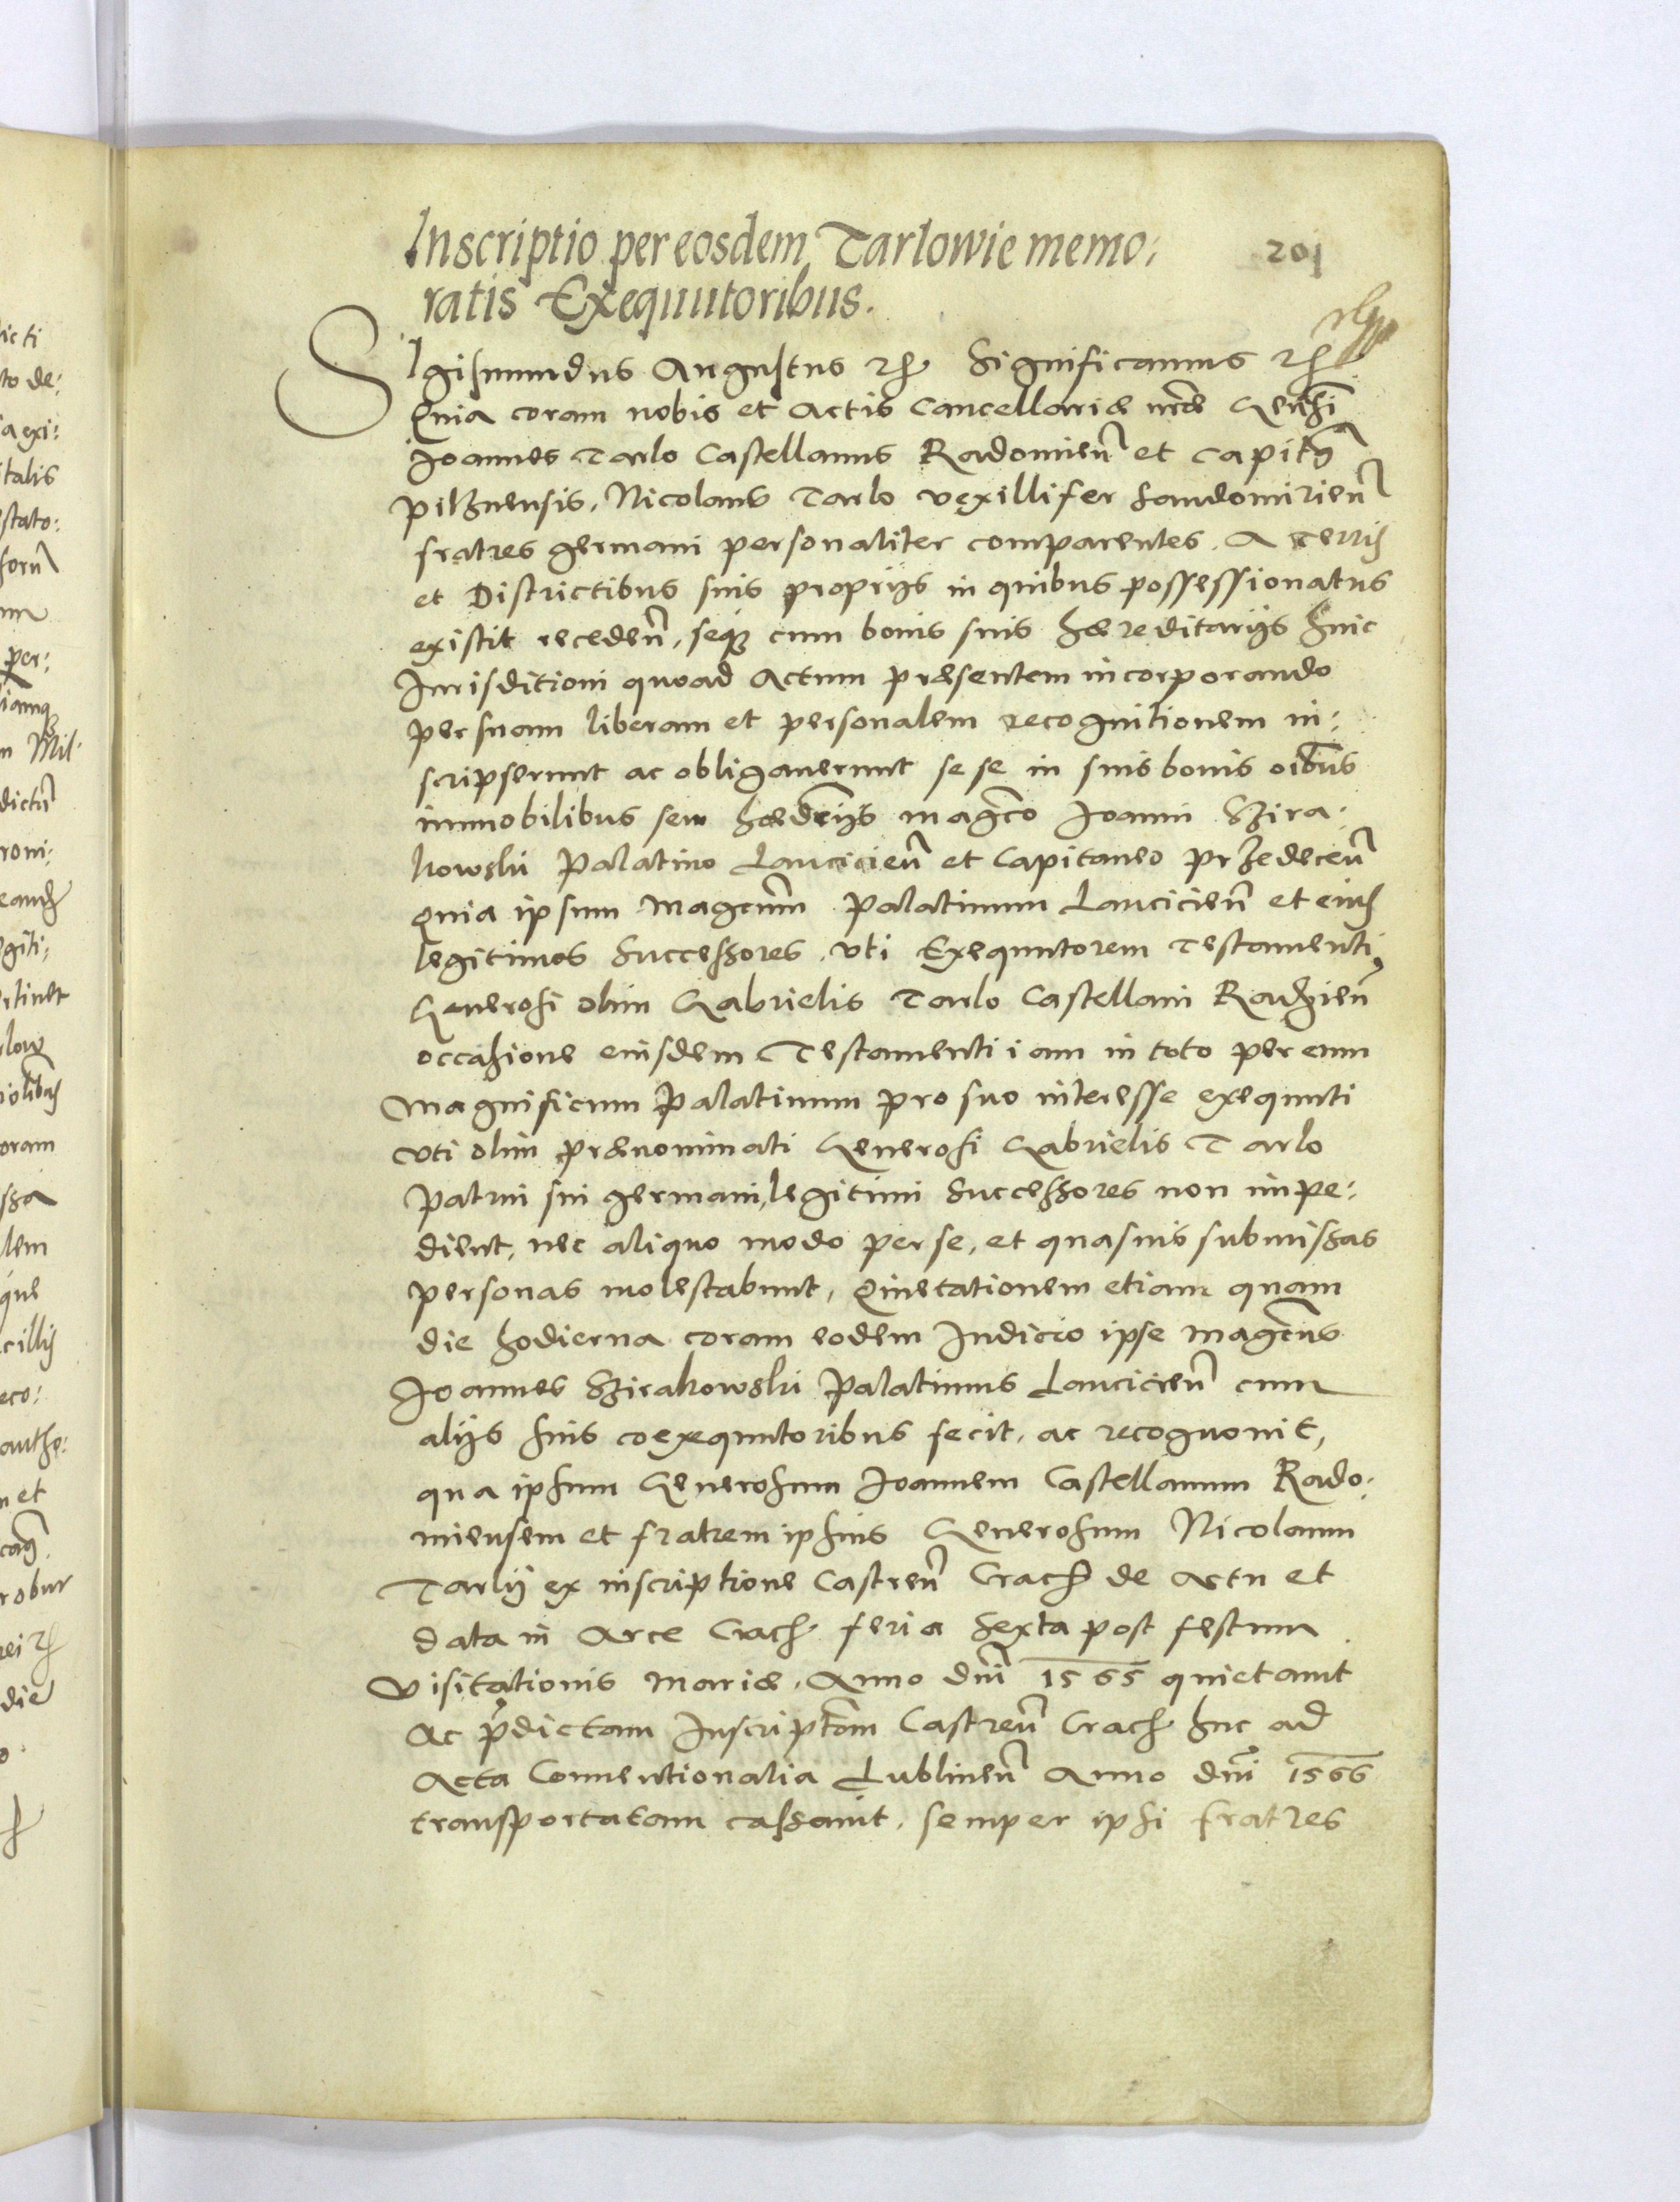 Inscriptio per eosdem Tarlowie memo:
201
ratis Exequutoribus.
SIgismundus Augustus etc. Significamus etc.
Quia coram nobis et Actis Cancellariæ nr̃æ Gen̄si
Joannes Tarlo Castellanus Radomien̄ et Capitā
pilznensis, Nicolaus Tarlo vexillifer sandomirien̄
fratres germani personaliter comparentes. A terris
et Districtibus suis proprijs in quibus possessionatus
existit receden̄, seq3 cum bonis suis hæreditarijs huic
Jurisditioni quoad Actum præsentem incorporando
per suam liberam et personalem recognitionem in:
scripserunt ac obligaverunt se se in suis bonis oībus
immobilibus seu hædrijs mag̃co Joanni Szira:
kowski Palatino Lancicien̄ et Capitaneo przedecen̄
Quia ipsum magcum̄ Palatinum Lancicien̄ et eius
legitimos Successores, vti Exequutorem Testamenti
Generosi olim Gabrielis Tarlo Castellani Radzien̄
occasione eiusdem Testamenti iam in toto per eum
magnificum Palatinum pro suo interesse exequuti
vti olim prænominati Generosi Gabrielis Tarlo
patrui sui germani, legitimi Successores non impe:
dient, nec aliquo modo per se, et quasuis submissas
personas molestabunt, Quietationem etiam quam
die hodierna coram eodem Judicio ipse mag̃cus
Joannes Szirakowski Palatinus Lancicien̄ cum
alijs suis coexequutoribus fecit, ac recognouit,
qua ipsum Generosum Joannem Castellanum Rado:
miensem et fratrem ipsius Generosum Nicolaum
Tarlij ex inscriptione Castren̄ Crach de Actu et
data in Arce Crach feria sexta post festum
visitationis mariæ, Anno dn̄i 1565 quietauit
Ac p̄dictam Inscriptōm Castren̄ Crach huc ad
Acta Conuentionalia Lublinen̄ Anno dn̄i 1566
transportatam cassauit, semper ipsi fratres